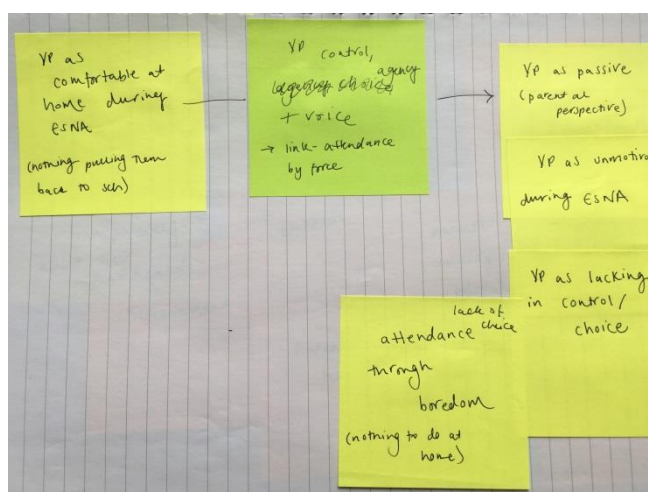 YP as
comfortable at
home during
ESNA
(nothing pulling them
back to sch)
YP control,
agency
+ voice
→ link - attendance
by force
YP as passive
(parental
perspective)
YP as unmotiva
during ESNA
YP as lacking
in control/
choice
lack of
choice
attendance
through
boredom
(nothing to do at
home)